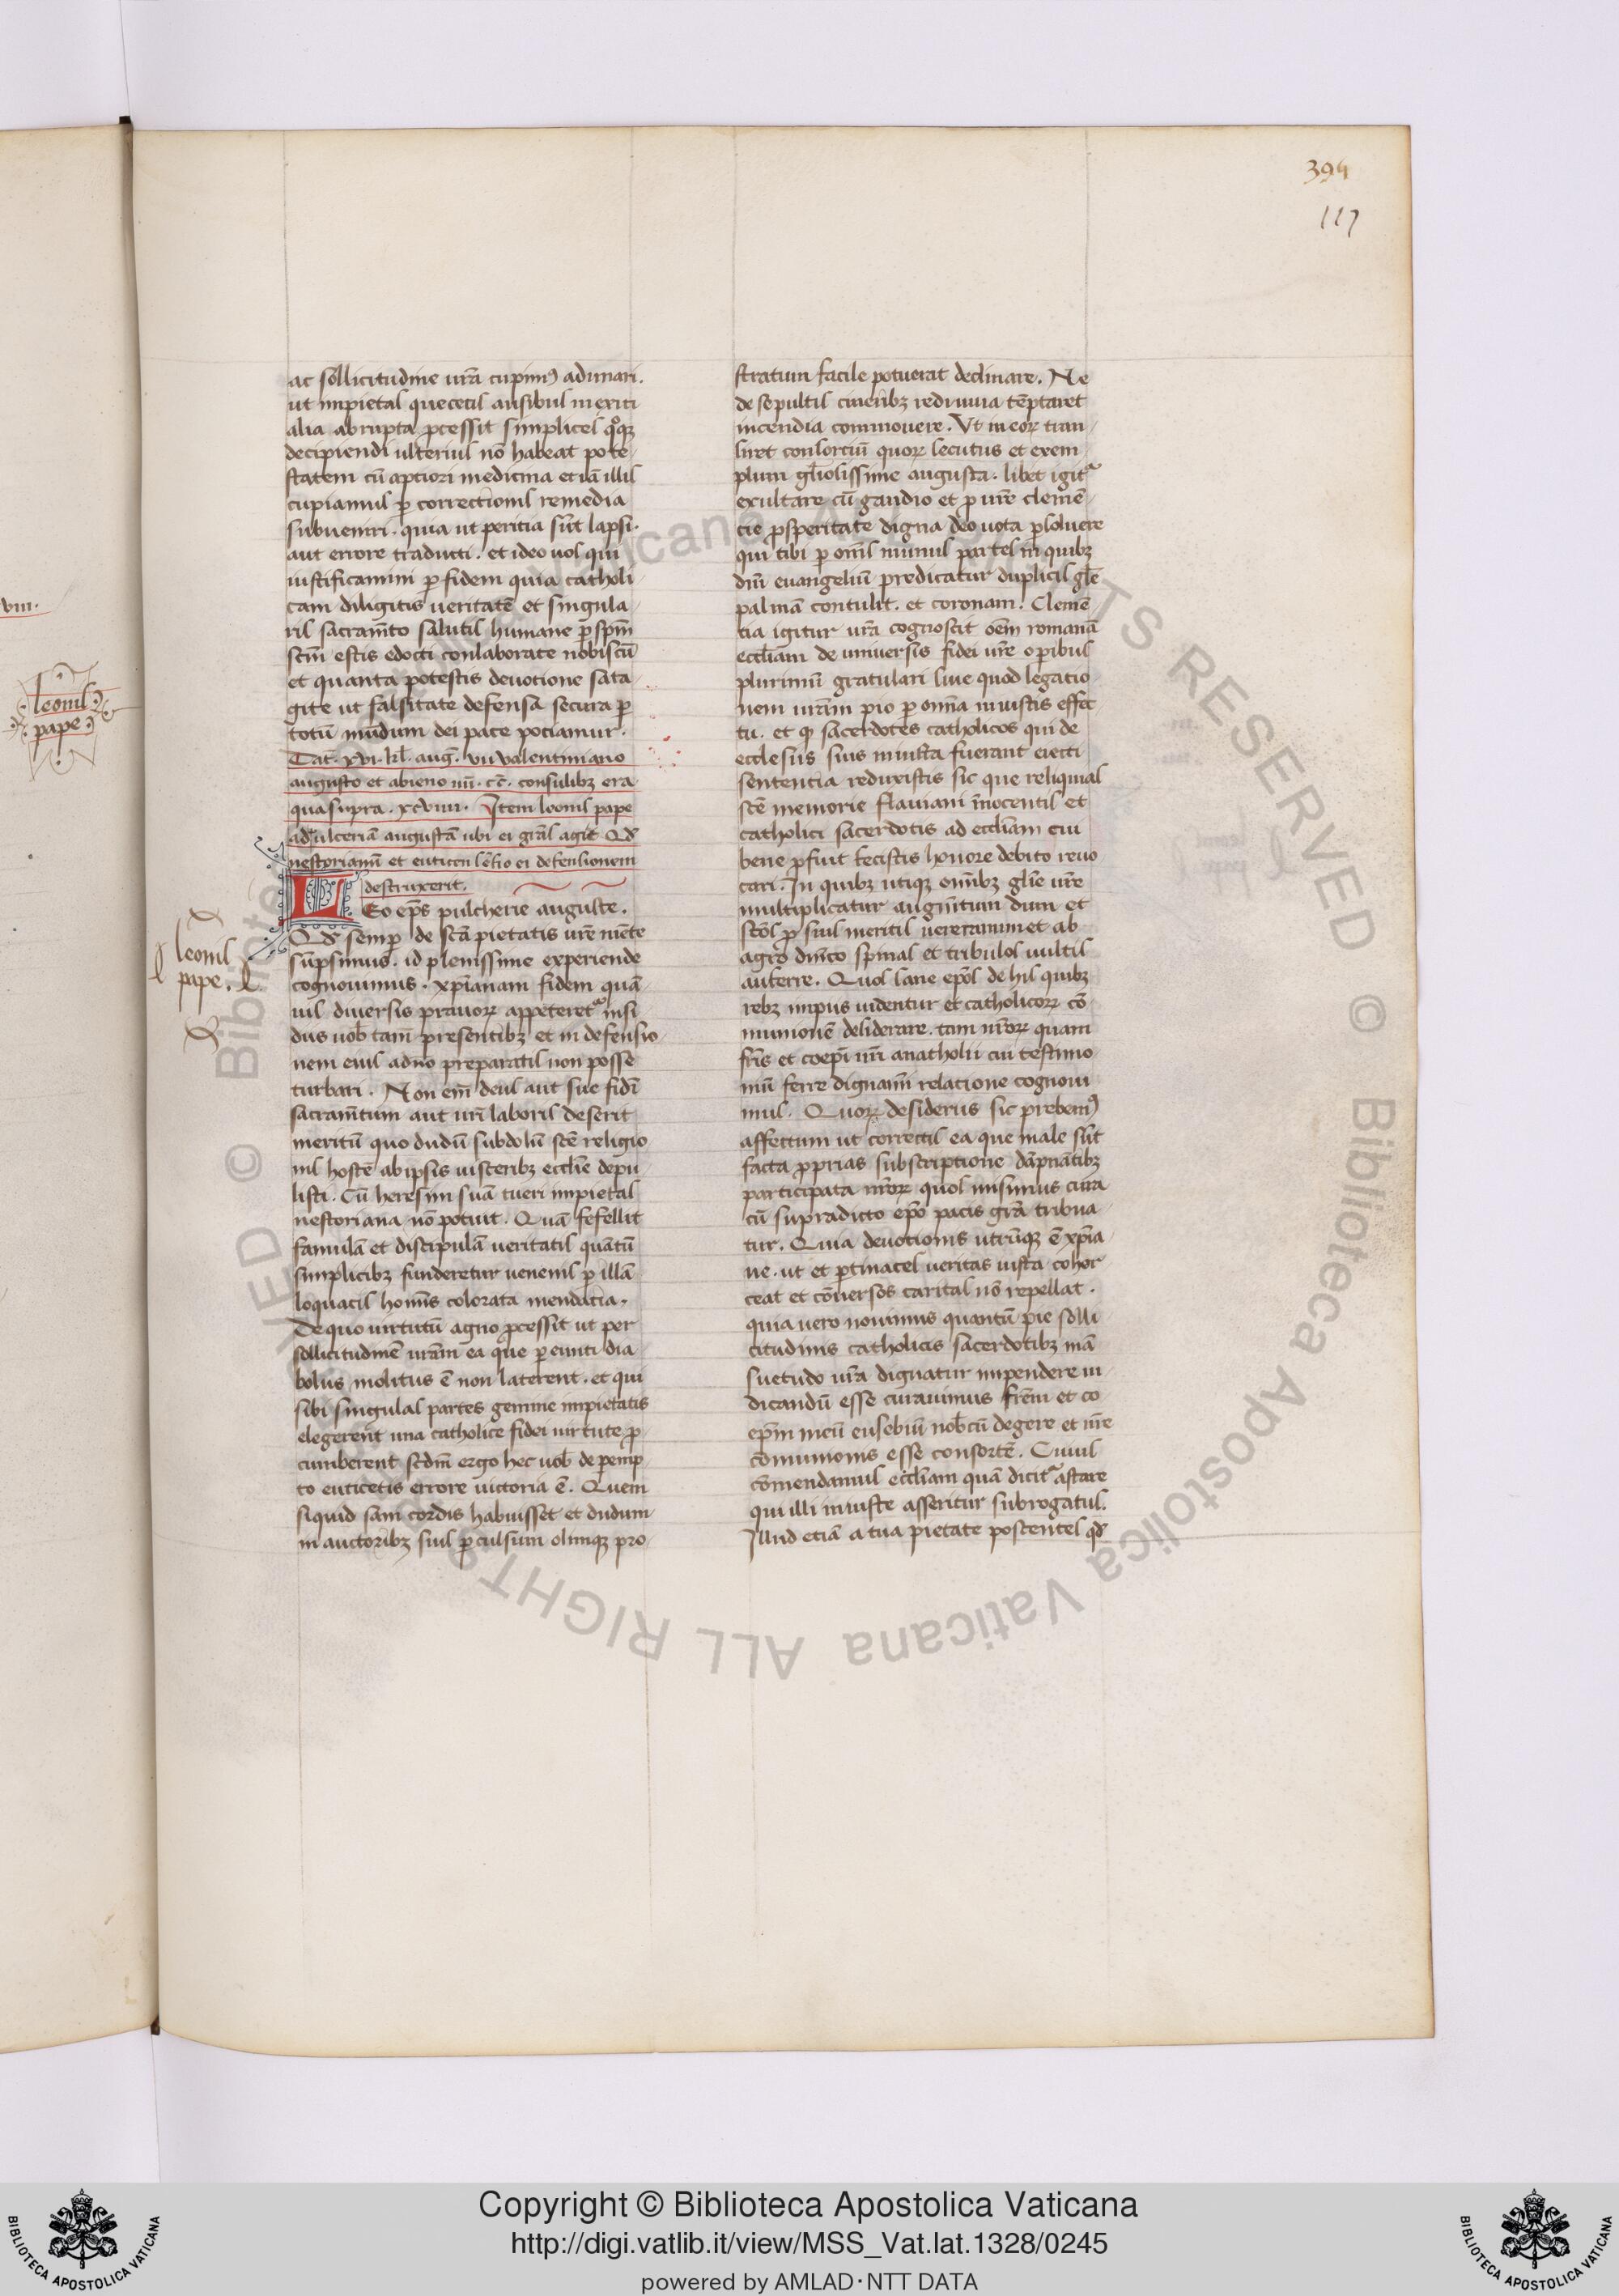 394
117
ac sollicitudine ur̄a cupimꝰ adunari.
ut impietas que cecis ausibus in exiti
alia abrupta ꝓcessit simplices qͦqꝫ
decipiendi ulterius nō habeat pote
statem cū aptiori medicina et iā illis
cupiamus ꝑ correctionis remedia
subueniri. quia ut peritia sūt lapsi.
aut errore traducti. et ideo uos qui
iustificamini ꝑ fidem quia catholi
cam diligitis ueritatē et singula
ris sacram̄to salutis humane ꝑ sp̄m
sc̄m estis edocti conlaborate nobiscū
et quanta potestis deuotione sata
gite ut falsitate defensa secura ꝑ
totū mūdum dei pace potiamur.
Dat̄. xvi. kł. auḡ. uii ualentiniano
augusto et abieno uiii. cc̄. consulibꝫ era
qua supra. xcviiii. Item leonis pape
ad pulceriā augustā ubi ei grās agit Qd
nestorianū et euticen ei defensionem
destruxerit.
leonis
pape.
LEo ep̄s pulcherie auguste.
Qd semꝑ de sc̄a pietatis ur̄e mēte
sūpsimus. id plenissime experiende
cognouimus. xp̄ianam fidem quā
uis diuersis prauorꝝ appeteret᷑ insi
diis uob̄ tam̄ presentibꝫ et in defensio
nem eius a dn̄o preparatis non posse
turbari. Non em̄ deus aut sue fidī
sacram̄tum aut ur̄i laboris deserit
meritū quo dudū subdolū sc̄e religio
nis hostē ab ipsis uisceribꝫ eccl̄ie depu
listi. Cū heresim suā tueri impietas
nestoriana nō potuit. Quā fefellit
famulā et discipulā ueritatis quātū
simplicibꝫ funderetur uenenis ꝑ illā
loquacis homīs colorata mendatia.
De quo uirtutū agno ꝓcessit ut per
sollicitudinē ur̄am ea que ꝑ eunti dia
bolus molitus ē non laterent. et qui
sibi singulas partes gemine impietatis
elegerent una catholice fidei uirtute ꝓ
cumberent sc̄dm̄ ergo hec uob̄ de ꝑemp
to euticetis errore uictoria ē. Quem
siquid sam̄ cordis habuisset et dudum
in auctoribꝫ suis ꝑculsum olimqꝫ pro
stratum facile potuerat declinare. Ne
de sepultis cineribꝫ rediuiua tēptaret
incendia commouere. Ut in eorꝝ tran
siret consortiū quorꝝ secutus et exem
plum gl̄iosissime augusta. libet igit᷑
exultare cū gaudio et ꝓ ur̄e clemē
cie ꝓsperitate digna deo uota ꝑsoluere
qui tibi ꝑ om̄s mūnus partes in quibꝫ
dn̄i euangeliū predicatur duplicis gl̄e
palmā contulit. et coronam. Clemē
tia igitur ur̄a cognoscit oēm romanā
eccl̄iam de uniuersis fidei ur̄e oꝑibus
plurimū gratulari siue quod legatio
nem nr̄am pio ꝑ omn̄a iuuistis effec
tu. et ꝙ sacerdotes catholicos qui de
ecclesiis suis iniusta fuerant eiecti
sententia reduxistis sic que reliquias
sc̄e memorie flauiani īnocentis et
catholici sacerdotis ad eccl̄iam cui
bene ꝓfuit fecistis honore debito reuo
cari. In quibꝫ utiqꝫ omībꝫ gl̄ie ur̄e
multiplicatur augm̄tum dum et
sc̄os ꝓ suis meritis ueneramini et ab
agro dn̄ico spinas et tribulos uultis
auferre. Quos sane ep̄os de his quibꝫ
rebꝫ impiis uidentur et catholicorꝝ cō
munionē desiderare. tam nr̄orꝝ quam
fr̄is et coep̄i nr̄i anatholii cui testimo
niū ferre dignam̄i relatione cognoui
mus. Quorꝝ desideriis sic prebemꝰ
affectum ut correctis ea que male sūt
facta ꝓprias subscriptione dāpnātibꝫ
participata nr̄orꝝ quos misimus cura
cū supradicto ep̄o pacis gr̄a tribua
tur. Quia deuotionis utrūqꝫ ē xp̄ia
ne. ut et ꝑtinaces ueritas iusta cohor
ceat et cōuersos caritas nō repellat.
quia uero nouimus quantū pie solli
citudinis catholicis sacerdotibꝫ mā
suetudo ur̄a dignatur impendere in
dicandū esse curauimus fr̄em et co
ep̄m meū eusebiū nob̄cū degere et nr̄e
cōmunionis esse consortē. Cuius
cōmendamus eccl̄iam quā dicit᷑ astare
qui illi iniuste asseritur subrogatus.
Illud etiā a tua pietate poscentes qd
viii.
leonis
pape
Copyright © Biblioteca Apostolica Vaticana
http://digi.vatlib.it/view/MSS_Vat.lat.1328/0245
powered by AMLAD·NTT DATA
BIBLIOTECA APOSTOLICA VATICANA
BIBLIOTECA APOSTOLICA VATICANA